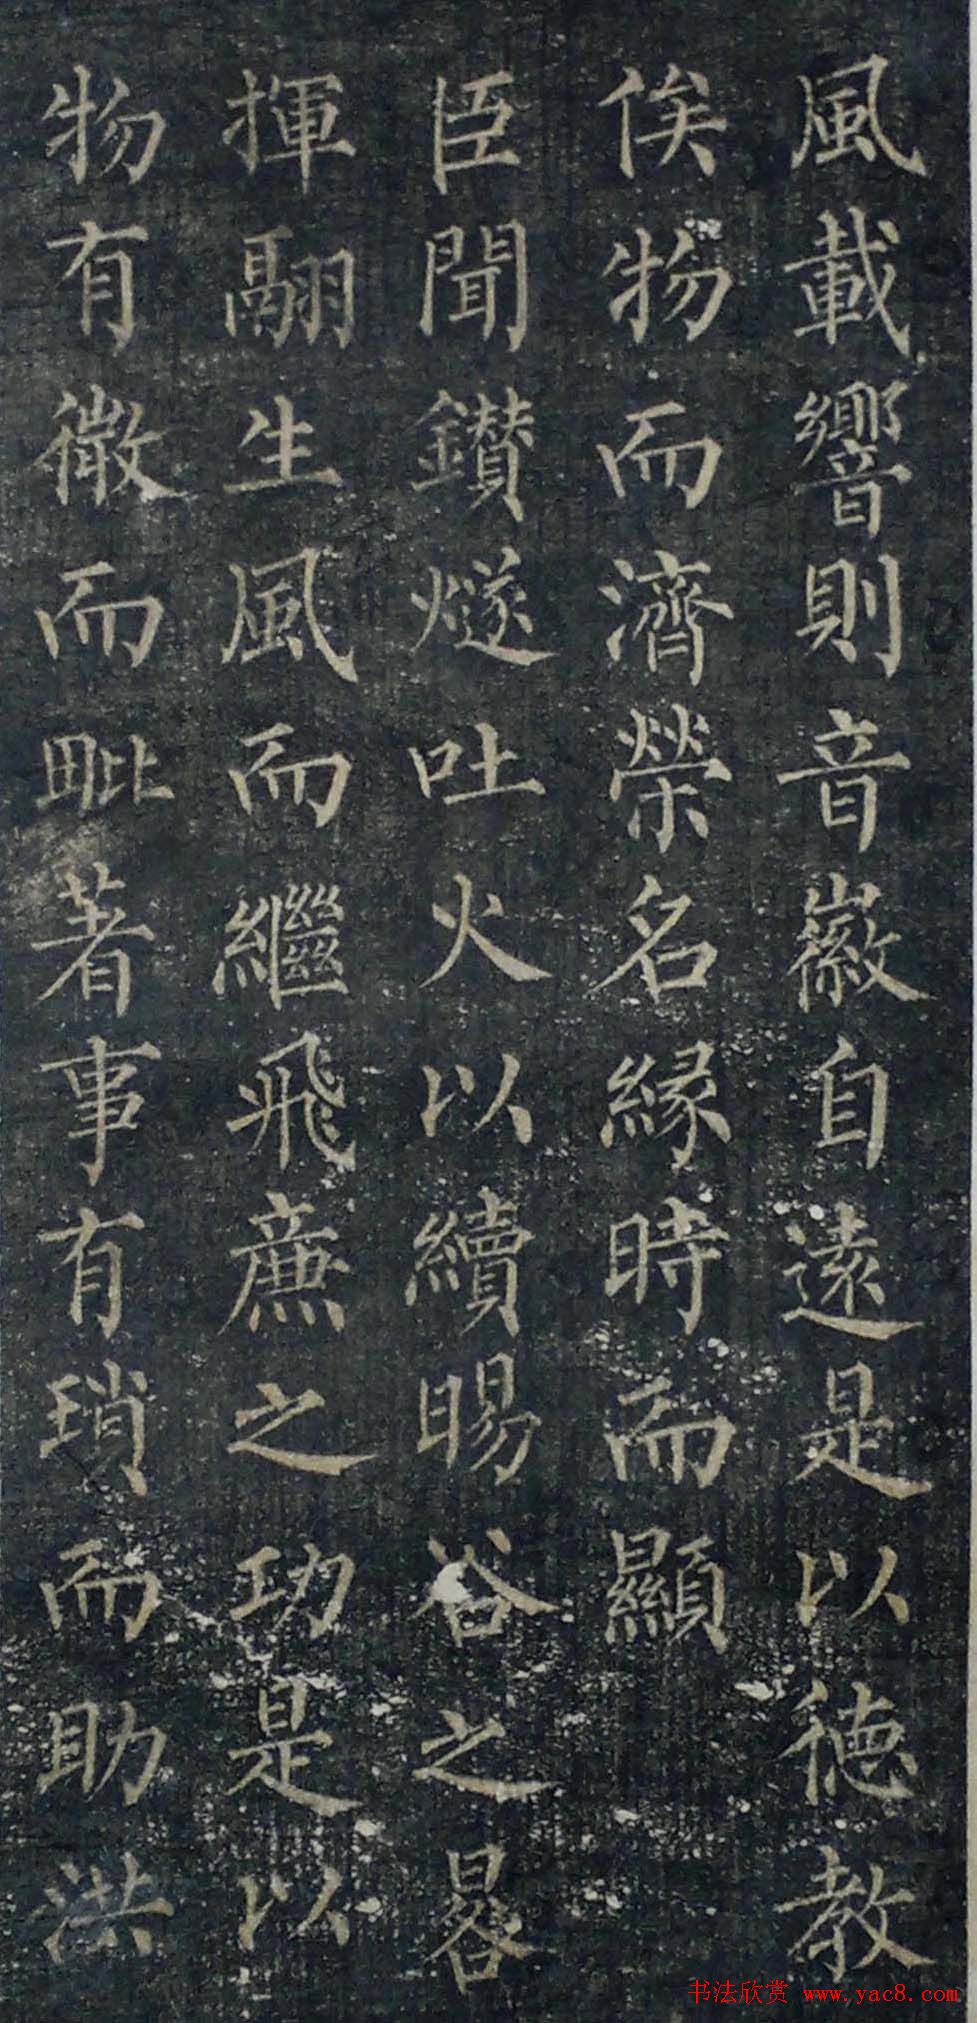 風載響則音徽自遠是以徳教
俟物而濟榮名縁時而顯
臣聞鑚燧吐火以續暘谷之晷
揮翮生風而繼飛廉之功是以
物有微而毗著事有瑣而助洪
书法欣赏 www.yac8.com